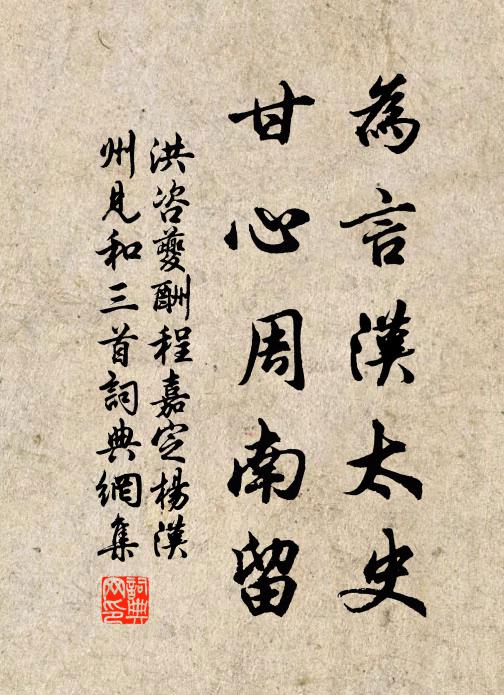 為言漢太史
甘心周南留
洪咨夔酬程嘉定楊漢
州見和三首詞典網集
詞典
网印